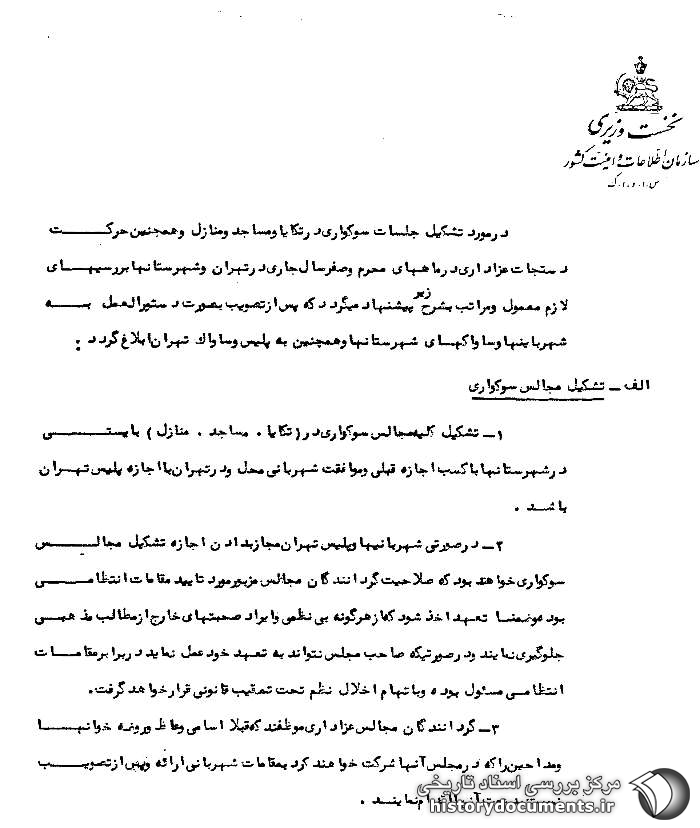 نخست وزیری
سازمان اطلاعات و امنیت کشور
س.ا.و.ا.ک
درمورد تشکیل جلسات سوگواری درتکایا ومساجد ومنازل وهمچنین حرکت
دستجات عزاداری درماههای محرم وصفرسال جاری درتهران وشهرستانها بررسیهای
لازم معمول ومراتب بشرح زیر پیشنهاد میگردد که پس ازتصویب بصورت دستورالعمل به
شهربانیها وساواکهای شهرستانها وهمچنین به پلیس وساواک تهران ابلاغ گردد :
الف ـ تشکیل مجالس سوگواری
۱ـ تشکیل کلیه مجالس سوگواری در ( تکایا ، مساجد ، منازل ) بایستی
درشهرستانها باکسب اجازه قبلی وموافقت شهربانی محل ودرتهران با اجازه پلیس تهران
باشد .
۲ـ درصورتی شهربانیها وپلیس تهران مجازبدادن اجازه تشکیل مجالس
سوگواری خواهند بود که صلاحیت گردانندگان مجالس مزبورمورد تایید مقامات انتظامی
بوده وضمنا تعهد اخذ شود که ازهرگونه بی نظمی وایراد صحبتهای خارج ازمطالب مذهبی
جلوگیری نمایند ودرصورتیکه صاحب مجلس نتواند به تعهد خود عمل نماید دربرابرمقامات
انتظامی مسئول بوده وباتهام اخلال نظم تحت تعقیب قانونی قرارخواهد گرفت.
۳ـ گردانندگان مجالس عزاداری موظفند که قبلا اسامی وعاظ وروضه خوانها
ومداحین راکه درمجلس آنها شرکت خواهند کرد بمقامات شهربانی ارائه وپس ازتصویب
نمایند .
مرکز بررسی اسناد تاریخی
historydocuments.ir